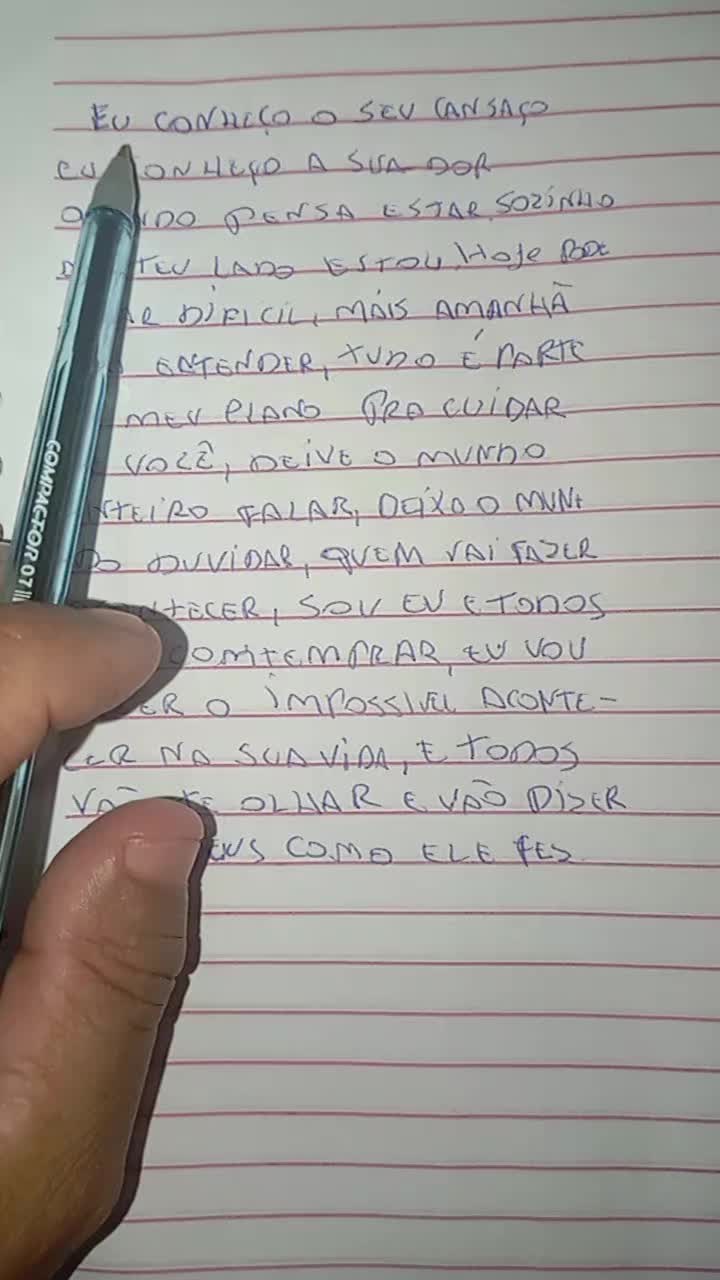 EU CONHEÇO O SEU CANSAÇO
EU CONHEÇO A SUA DOR
PENSA ESTAR SOZINHO
TEU LADO ESTOU, HOJE PODE
DIFICIL, MAIS AMANHÃ
ENTENDER, TUDO É PARTE
MEU PLANO PRA CUIDAR
VOCÊ, DEIVE O MUNDO
FALAR, DEIXO O MUN
DO DUVIDAR, QUEM VAI FAZER
SOU EU E TODOS
COMTEMPRAR, EU VOU
O IMPOSSIVEL ACONTE-
CER NA SUA VIDA, E TODOS
VÃO TE OLHAR E VÃO DIZER
COMO ELE FES
COMPACTOR 07